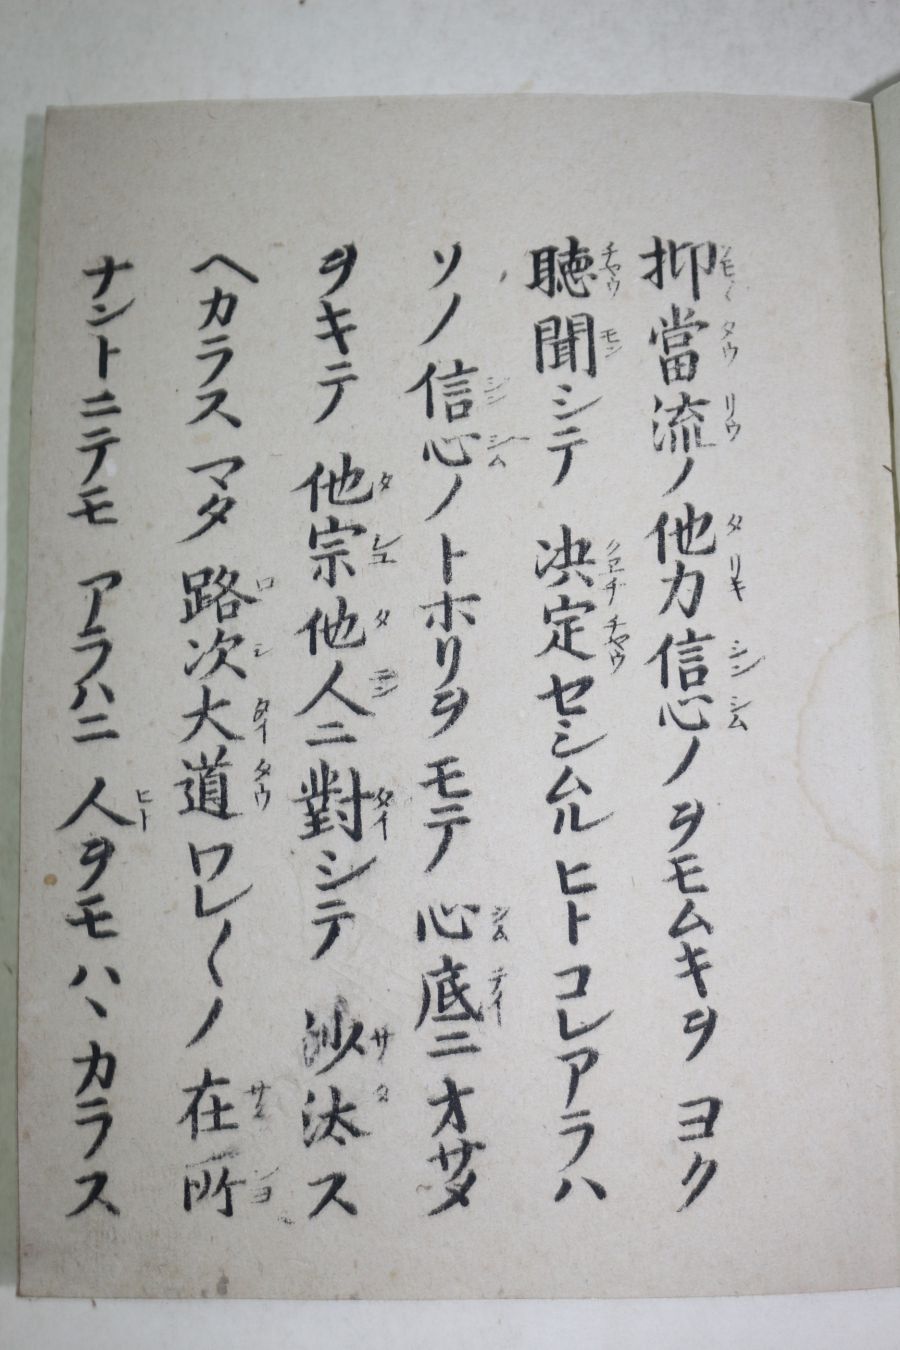 抑當流ノ他力信心ノヲモムキヲ ヨク
聴聞シテ 决定セシムル ヒト コレアラハ
ソノ信心ノ トホリヲ モテ 心底ニ オサメ
ヲキテ 他宗他人ニ對シテ 沙汰ス
ヘカラス マタ 路次大道 ワレ〱ノ 在所
ナントニテモ アラハニ 人ヲモ ハヽカラス